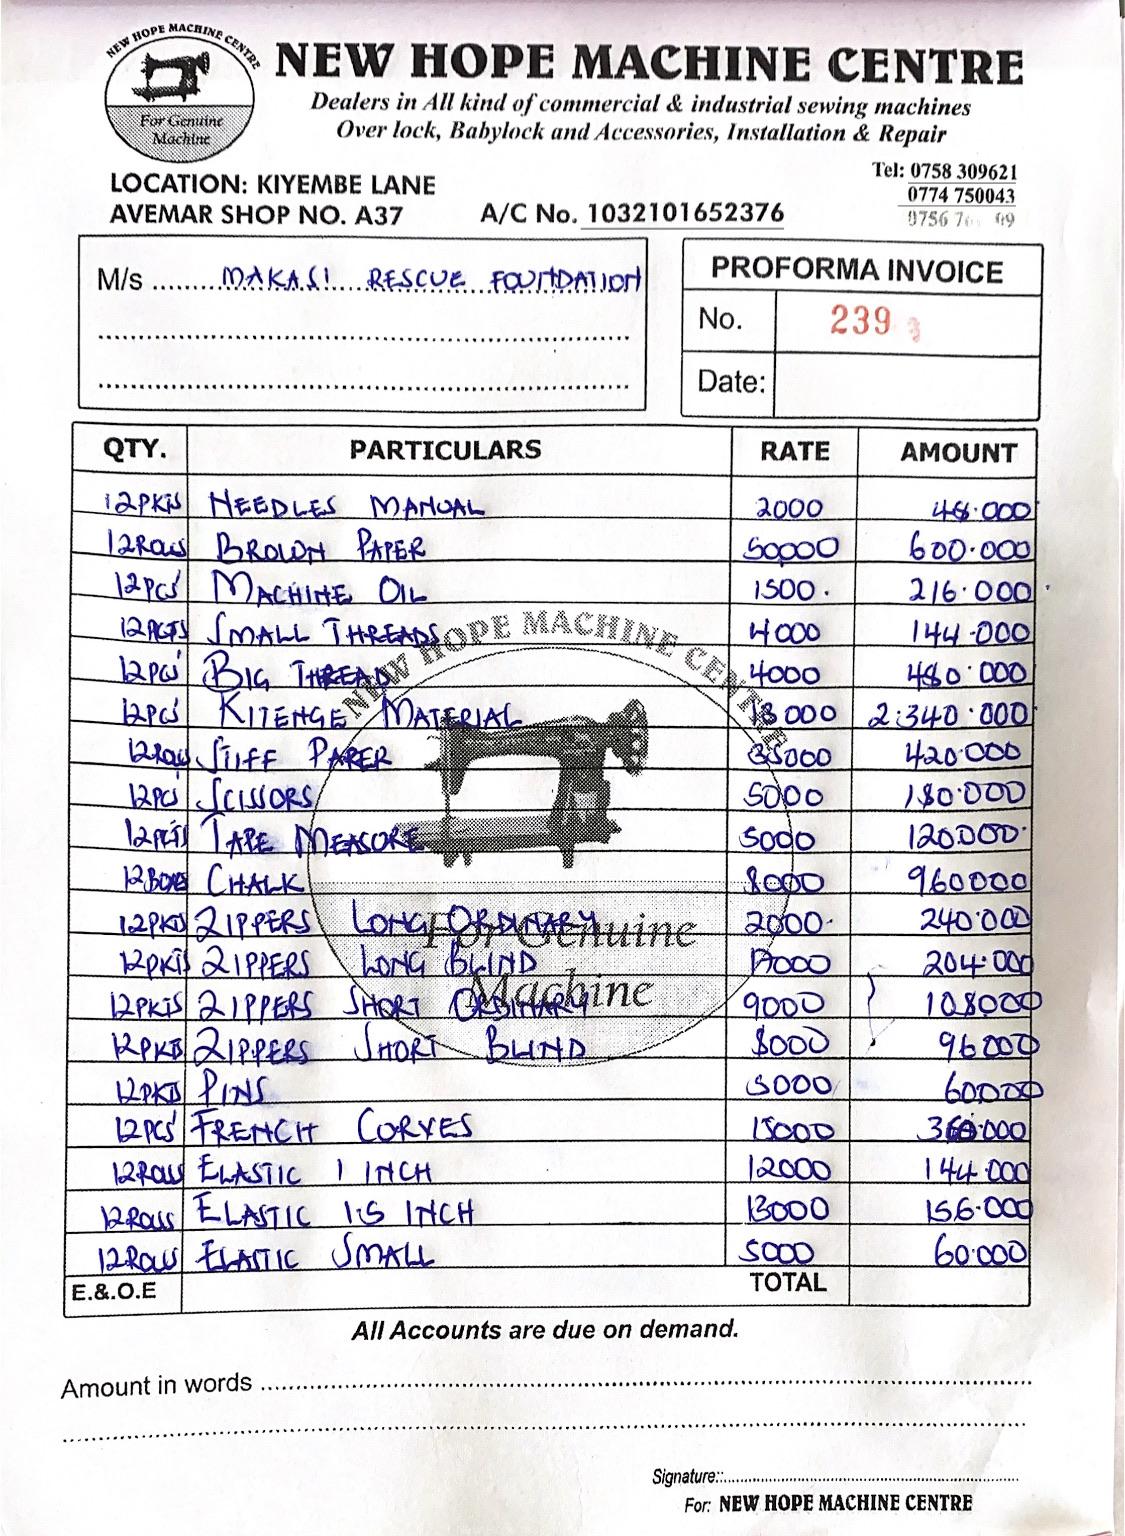 NEW HOPE MACHINE CENTRE
For Genuine
Machine
NEW HOPE MACHINE CENTRE
Dealers in All kind of commercial & industrial sewing machines
Over lock, Babylock and Accessories, Installation & Repair
LOCATION: KIYEMBE LANE
AVEMAR SHOP NO. A37
A/C No. 1032101652376
Tel: 0758 309621
0774 750043
M/s MAKASI RESCUE FOUNDATION
PROFORMA INVOICE
No. 239
Date:
QTY. PARTICULARS RATE AMOUNT
12PKTS NEEDLES MANUAL 2000 48.000
12ROLLS BROWN PAPER 50000 600.000
12PCS MACHINE OIL 1500. 216.000
12PCTS SMALL THREADS 4000 144.000
12PCS BIG THREAD 4000 480.000
12PCS KITENGE MATERIAL 13000 2:340.000
12ROLLS STIFF PAPER 35000 420.000
12PCS SCISSORS 5000 180.000
12PCTS TAPE MEASURE 5000 120.000
12BOXES CHALK 8000 960000
12PKTS ZIPPERS LONG ORDINARY 2000 240.000
12PKTS ZIPPERS LONG BLIND 17000 204.000
12PKTS ZIPPERS SHORT ORDINARY 9000 108000
12PKTS ZIPPERS SHORT BLIND 8000 96000
12PKTS PINS 5000 60000
12PCS FRENCH CURVES 15000 360.000
12ROLLS ELASTIC 1 INCH 12000 144.000
12ROLLS ELASTIC 1.5 INCH 13000 156.000
12ROLLS ELASTIC SMALL 5000 60.000
E.&.O.E TOTAL
NEW HOPE MACHINE CENTRE
For Genuine
Machine
All Accounts are due on demand.
Amount in words
Signature:
For: NEW HOPE MACHINE CENTRE